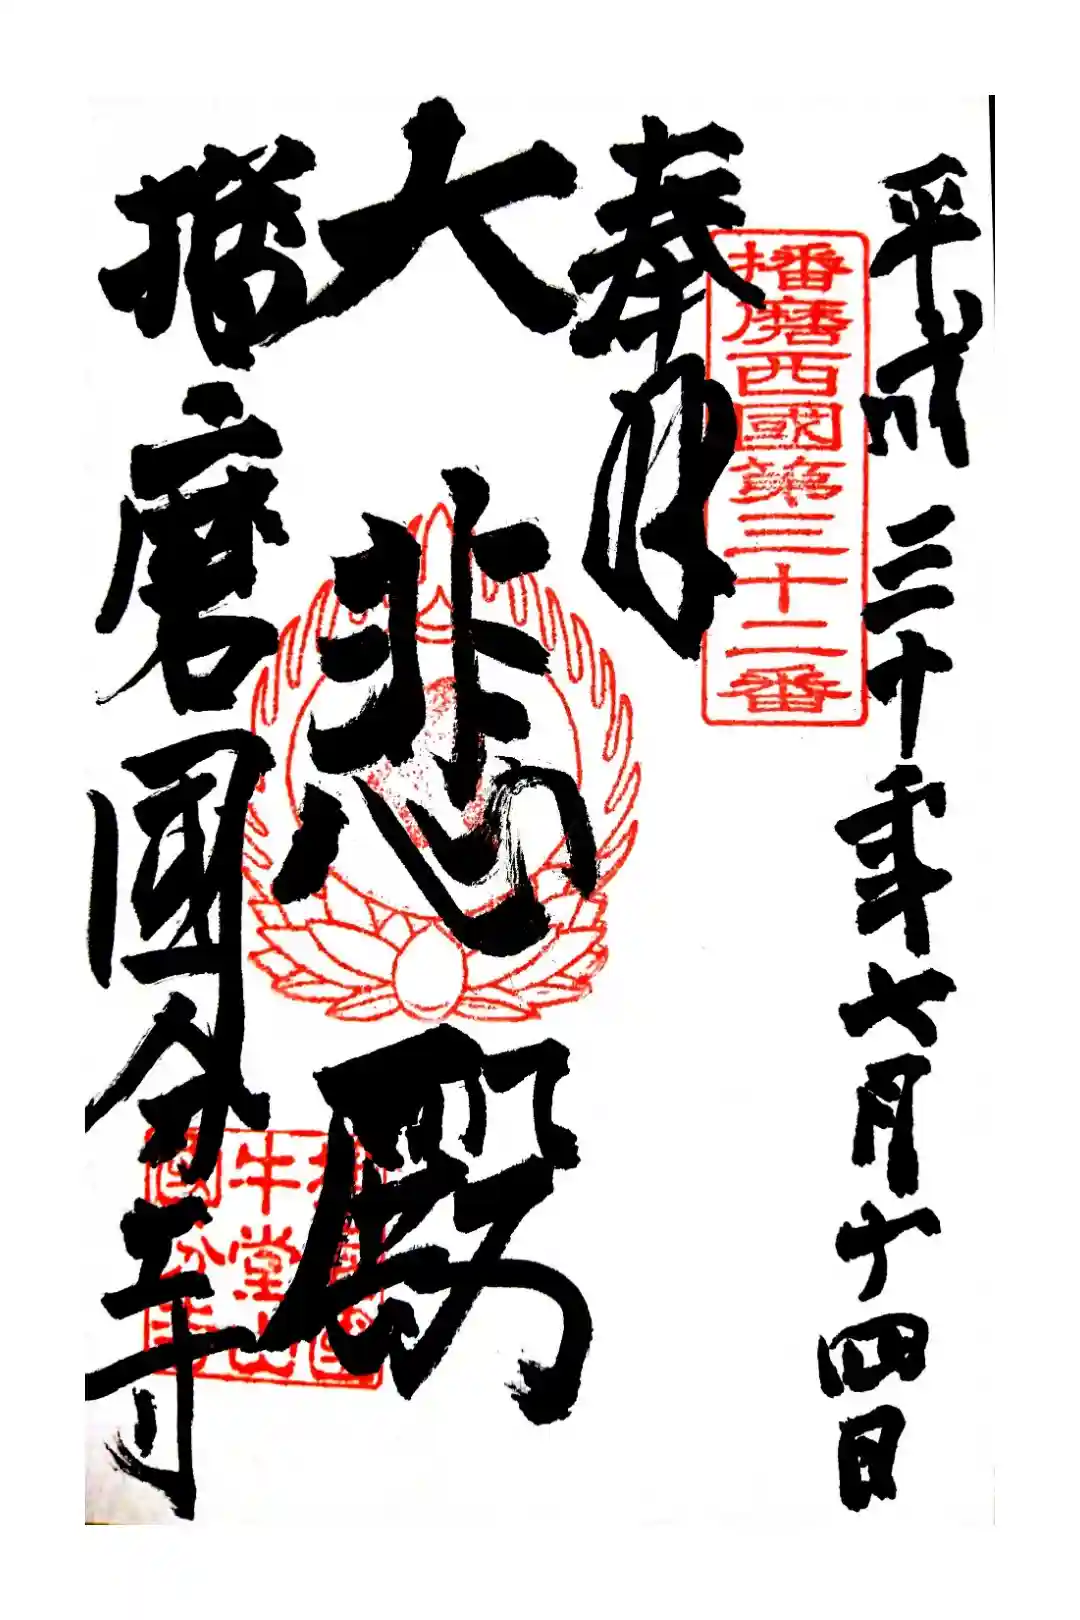 平成三十年七月十四日
奉拝
播磨西國第三十二番
大悲殿
播磨國分寺
播磨國
牛堂山
國分寺